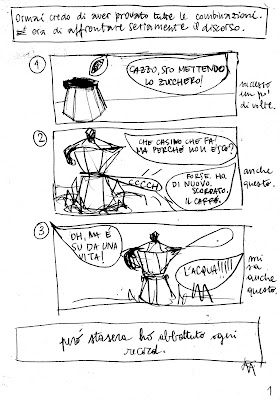 Ormai credo di aver provato tutte le combinazioni.
È ora di affrontare seriamente il discorso.
1
CAZZO, STO METTENDO
LO ZUCCHERO!
successo
un po'
di volte.
2
CHE CASINO CHE FA!
MA PERCHÉ NON ESCE?
CCCCH
FORSE HO
DI NUOVO
SCORDATO
IL CAFFÈ.
anche
questo.
3
OH, MA È
SU DA UNA
VITA!
L'ACQUA!!!!!
mi
sa
anche
questo.
però stasera ho abbattuto ogni
record.
1